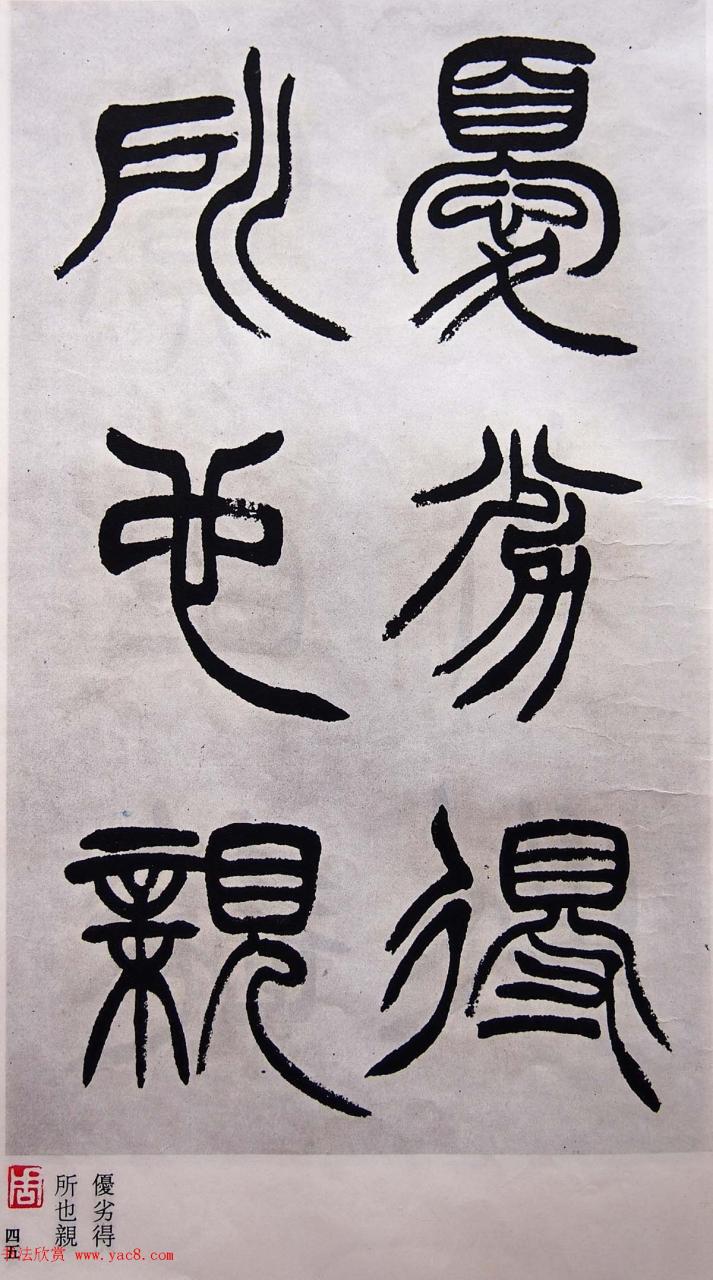 憂劣得
所也親
優劣得
所也親
四五
书法欣赏 www.yac8.com